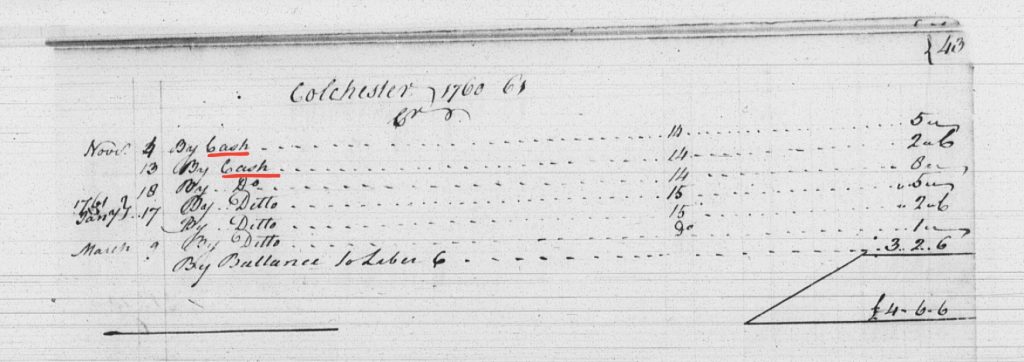 {43
Colchester } 1760 61
Cr
Novr. 4 By Cash 14 5 "
13 By Cash 14 2 " 6
18 By Do 14 8 "
1761 Jany 17 By Ditto 15 " 5 "
By Ditto 15 " 2 " 6
March 9 By Ditto Do 1 "
By Ballance to Liber 6 3. 2. 6
£4-6-6